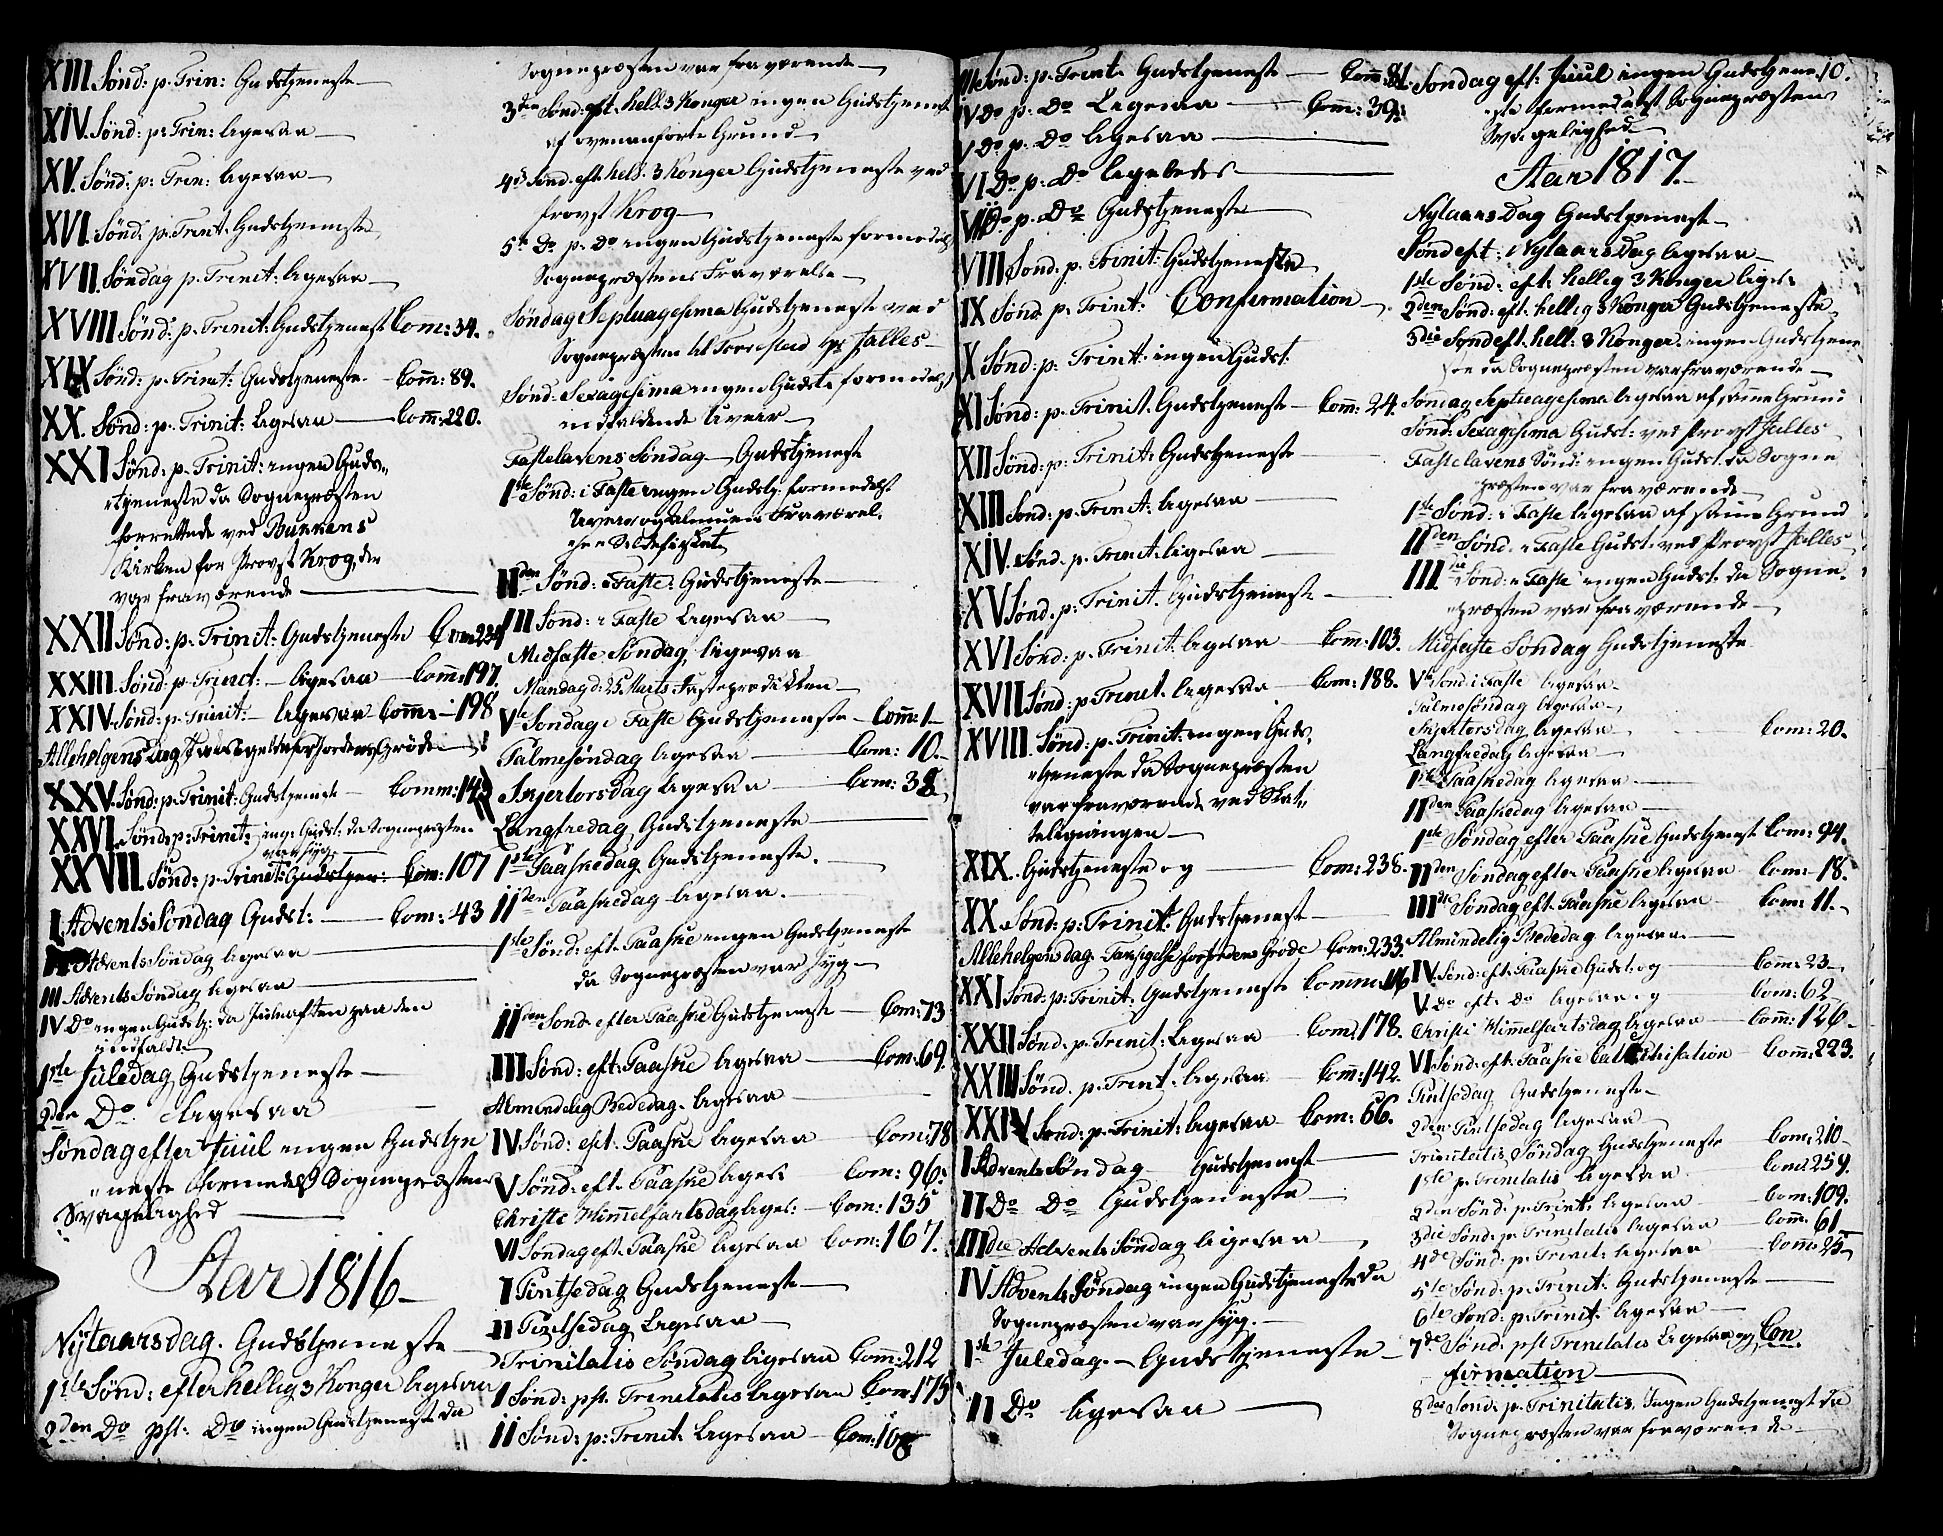 XIII. Sønd: p. Trin: Gudstjeneste
XIV. Sønd: p: Trin: ligesaa
XV. Sønd: p: Trin: ligesaa
XVI. Sønd: p. Trinit: Gudstjeneste
XVII. Søndag p. Trinit: ligesaa
XVIII Sønd: p. Trinit: Gudstjeneste Com: 34.
XIX Sønd: p. Trinit: Gudstjeneste - Com̄: 89.
XX. Sønd: p. Trinit: ligesaa Com̄: 220.
XXI Sønd: p. Trinit: ingen Guds„
„tjeneste da Sognepræsten
forrettede ved Bunkens
Kirken for Provst Krog, der
var fraværende
XXII Sønd: p. Trinit: Gudstjeneste Com 234
XXIII Sønd: p. Trinit: ligesaa Com̄: 197.
XXIV Sønd: p. Trinit: ligesaa Com̄: 198
Allehelgens Dag Taksigelse for Jordens Grøde
XXV. Sønd: p. Trinit: Gudstjeneste Comm: 143
XXVI Sønd: p: Trinit: ing: Gudst: da Sognepræsten
var syg
XXVII Sønd: p. Trinit: Gudstjen: Com: 107
I Advents Søndag Gudst: Com: 43
Advents Søndag ligesaa
III Advents Søndag ligesaa
IV Do ingen Gudstj: da Juleaften paa den
indfaldt
1ste Juledag Gudstjeneste
2den Do ligesaa
Søndag efter Juul ingen Gudstje
„neste formedelst Sognepræstens
Svagelighed
Aar 1816
Nytaarsdag. Gudstjeneste
1ste Sønd: efter hellig 3 Konger ligesaa
2den Do pst. Do ingen Gudstjeneste da
Sognepræsten var fraværende
3die Sønd: eft. hell: 3 Konger ingen Gudstjeneste
af ovenanførte Grund
4de Sønd. eft. hell. 3 Konger Gudstjeneste ved
Provst Krog
5te Do p. Do ingen Gudstjeneste formedelst
Sognepræstens Fraværelse
Søndag Septuagesima Gudstjeneste ved
Sognepræsten til Hr Jalles
Sønd: Sexagesima ingen Gudst: formedelst
indfaldende Uveir
Fastelavens Søndag Gudstjeneste
1ste Sønd: i Faste ingen Gudstj: formedelst
Uveir og Almuens Fraværel,
IIden Sønd: i Faste: Gudstjeneste
III Sønd: i Faste ligesaa
Midfaste Søndag ligesaa
Mandag d: 25 Marts Fasteprædikken
Vte Søndag i Faste Gudstjeneste Com̄: 1
Palmesøndag ligesaa Com: 10.
Skjertorsdag ligesaa Com: 38
Langfredag Gudstjeneste
1ste Paaskedag Gudstjeneste.
IIden Paaskedag ligesaa.
1ste Sønd: eft. Paaske ingen Gudstjeneste
da Sognepræsten var syg
IIden Sønd efter Paaske Gudstjeneste Com: 73
III Sønd: eft: Paaske ligesaa Com: 69.
Almindelig Bededag. ligesaa
IV Sønd: eft. Paaske ligesaa Com: 78
V Sønd: eft. Paaske liges: Com: 96:
Christi Himmelfartsdag liges: Com: 135
VI Søndag eft. Paaske ligesaa Com: 167.
I Pintsedag Gudstjeneste
II Pintsedag ligesaa
Trinitatis Søndag ligesaa Com̄: 212
I Sønd: pst. Trinitatis ligesaa Com 175
II Sønd: p: Trinit: ligesaa Com: 168
III Sønd: p. Trinit. Gudstjeneste Com: 81
IV Do p. Do ligesaa Com: 39:
V Do p. Do ligesaa
VI Do p. Do ligeledes
VII Do p. Do Gudstjeneste
VIII Sønd. p. Trinit: Gudstjeneste
IX Sønd p. Trinit: Confirmation
X Sønd: p: Trinit: ingen Gudst.
XI Sønd: p. Trinit. Gudstjeneste Com̄: 24.
XII Sønd: p: Trinit: Gudstjeneste
XIII Sønd. p. Trinit. ligesaa
XIV. Sønd. p. Trinit. ligesaa
XV Sønd. p: Trinit. Gudstjeneste
XVI Sønd: p. Trinit. ligesaa Com̄: 103.
XVII Sønd: p Trinit. ligesaa Com: 188.
XVIII. Sønd: p. Trinit: ingen Guds„
„tjeneste da Sognepræsten
var fraværende ved Skat„
teligningen
XIX. Gudstjeneste og Com: 238.
XX. Sønd: p: Trinit: Gudstjeneste
Allehelgensdag. Taksigelse for Jordens Grøde Com: 233
XXI Sønd: p: Trinit: Gudstjeneste Comm: 116
XXII Sønd: p. Trinit: ligesaa Com: 178.
XXIII Sønd. p. Trinit. ligesaa Com̄: 142.
XXIV Sønd: p. Trinit: ligesaa Com: 66.
I Advents Søndag Gudstjeneste
II Do Do Gudstjeneste
IIIdie Advents Søndag ligesaa
IV Advents Søndag ingen Gudstjeneste da
Sognepræsten var syg.
1ste Juledag. Gudstjeneste
II Do ligesaa
Søndag eft: Juul ingen Gudstjene 10.
„ste formedelst Sognepræstens
Svagelighed
Aar 1817.
Nytaars Dag Gudstjeneste
Sønd eft: Nytaars Dag ligesaa
1ste Sønd: eft: hellig 3 Konger liges:
2den Sønd: eft. hellig 3 Konger Gudstjeneste
3die Sønd eft. hell: 3 Konger. ingen Gudstjene
ste da Sognepræsten var fraværende
Søndag Septuagesima ligesaa af samme Grund
Sønd: Sexagesima Gudst: ved Provst Jalles
Fastelavens Sønd: ingen Gudst. da Sogne
præsten var fraværende
1ste Sønd: i Faste ligesaa af samme Grund
IIden Sønd. i Faste Gudst: ved Provst Jalles
III die Sønd: i Faste ingen Gudst. da Sogne„
„præsten var fraværende
Midfaste Søndag Gudstjeneste
Vte Sønd: i Faste ligesaa
Palmesøndag ligesaa
Skjertorsdag ligesaa Com: 20.
Langfredag ligesaa
1ste Paaskedag ligesaa
IIden Paaskedag ligesaa
1ste Søndag efter Paaske Gudstjeneste Com: 94.
IIden Søndag efter Paaske ligesaa Com: 18.
IIIdie Søndag eft. Paaske ligesaa Com: 11.
Almindelig Bededag ligesaa
IV. Sønd: eft: Paaske Gudst: og Com̄: 23
V. Do eft: Do ligesaa og Com: 62
Christi Himmelfartsdag ligesaa Com̄: 126
VI Sønd: eft. Paaske Catechisation Com̄: 223.
Pintsedag Gudstjeneste
2den Pintsedag ligesaa
Trinitatis Søndag Gudstjeneste Com: 210
1ste p. Trinitatis ligesaa Com: 259.
2den Sønd: p. Trinit: ligesaa Com: 109.
3die Sønd: p. Trinitatis ligesaa Com̄: 61
4de Sønd: p. Trinit: ligesaa Com̄: 25
5te Sønd: p. Trinit: Gudstjeneste
6te Sønd: p: Trinit: ligesaa
7de Sønd: pst Trinitatis ligesaa og Con
firmation
8de Sønd: p. Trinitatis. Ingen Gudstjeneste da
Sognepræsten var fraværende